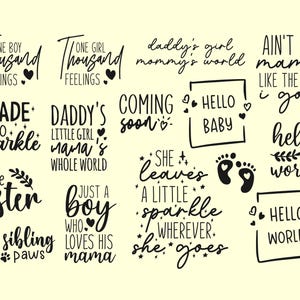 NE BOY
Thousand
INGS
ONE GIRL
Thousand
FEELINGS
daddy's girl
mommy's world
AIN'T
mam
LIKE THE
i go
ADE
arkle
DADDY'S
LITTLE GIRL
mama's
WHOLE WORLD
COMING
soon
HELLO
BABY
hel
wor
SHE
leaves
A LITTLE
sparkle
WHEREVER
she goes
ster
sibling
paws
JUST A
boy
WHO
LOVES HIS
mama
HELLO
WORL